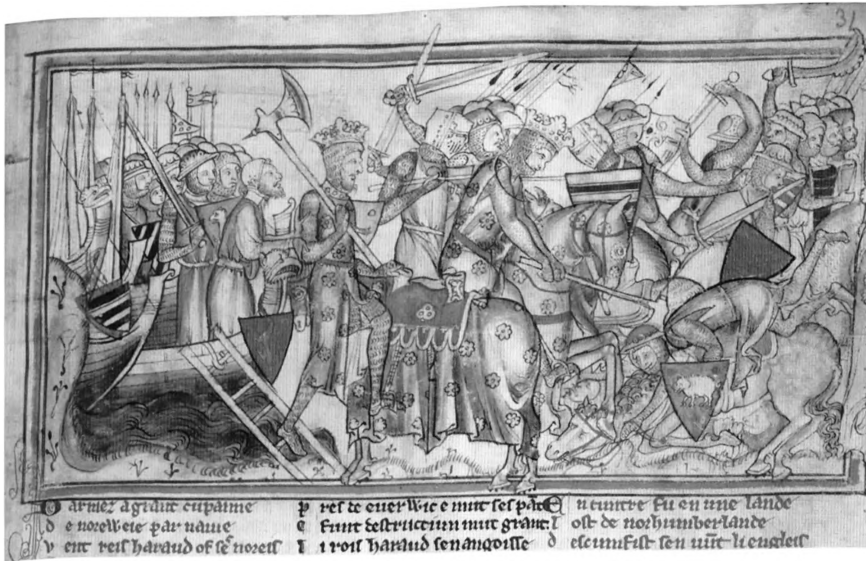 31
O armez a grant cupainie
d e noreweie par nauie
v ent reis haraud of se noreis
p res de euerwic e mut ses
e funt destructiun mut grant.
l i rois haraud sen angoisse
n cuntre fu en une lande
l ost de norhumberlande
d escumfist sen unt li engleis